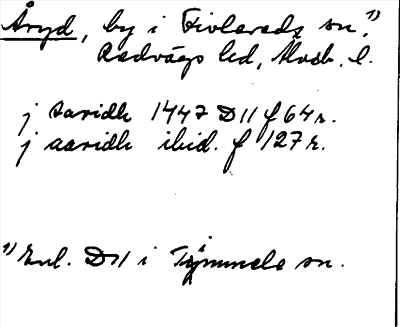 Åryd, by i Finlereds sn, 1)
Redvägs hd, Älvsb. l.
j aaridh 1447 D11 f 64 r.
j aaridh ibid. f 127 r.
1) Enl. D11 i Timmele sn.